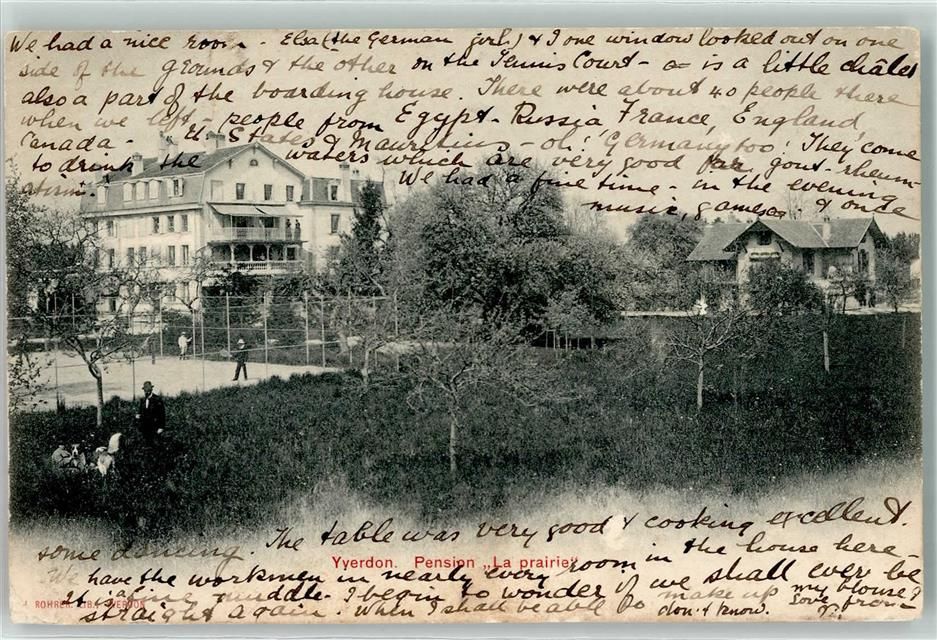 We had a nice room - Elsa (the German girl) & I one window looked out on one
side of the grounds & the other on the Tennis Court - a is a little châlet
also a part of the boarding house. There were about 40 people there
when we left - people from Egypt - Russia France, England
Canada - U. States & Mauritius - oh! Germany too! They come
to drink the waters which are very good for gout - rheum-
atism. We had a fine time - in the evening
music, games & once
some dancing. The table was very good & cooking excellent.
Yverdon. Pension „La prairie“
We have the workmen in nearly every room in the house here -
It's a fine muddle - I begin to wonder if we shall ever be
straight again. When I shall be able to make up my blouse I
don't know. Love from
ROHRER, LIB., YVERDON